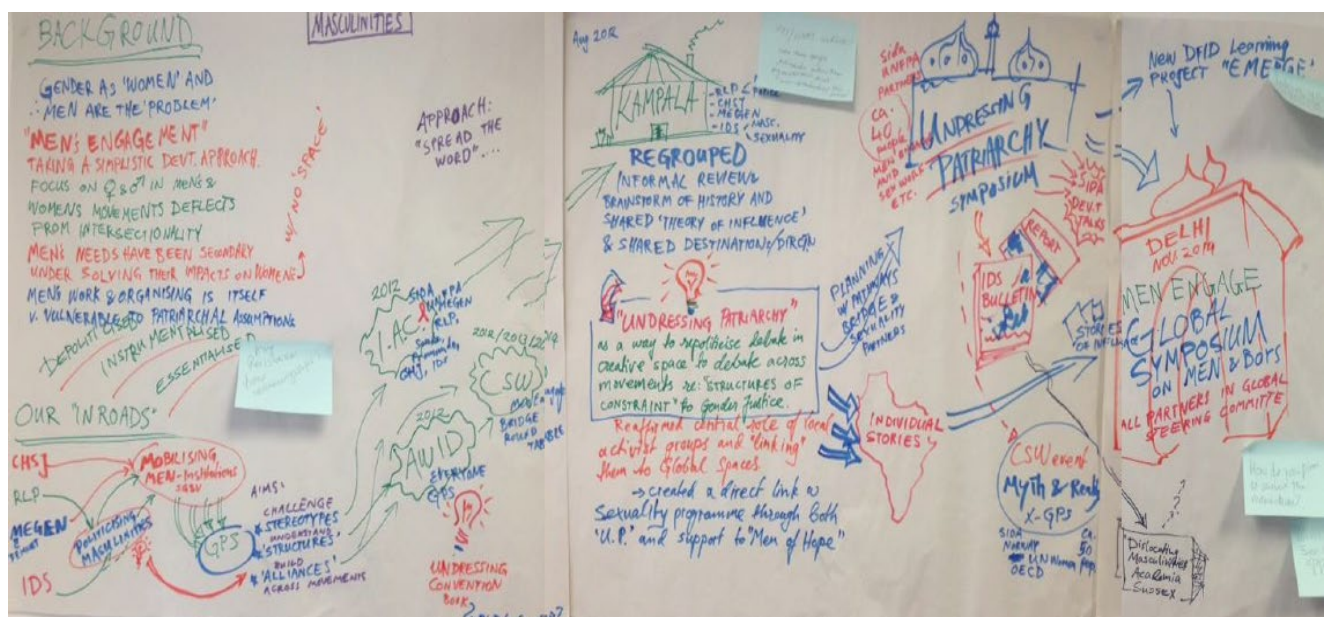 BACKGROUND
GENDER AS 'WOMEN' AND
∴ MEN ARE THE 'PROBLEM'
"MEN'S ENGAGEMENT"
TAKING A SIMPLISTIC DEVT. APPROACH.
FOCUS ON ♀ & ♂ IN MEN'S &
WOMEN'S MOVEMENTS DEFLECTS
FROM INTERSECTIONALITY
MEN'S NEEDS HAVE BEEN SECONDARY
UNDER SOLVING THEIR IMPACTS ON WOMEN
W/ NO 'SPACE'
MEN'S WORK & ORGANISING IS ITSELF
V. VULNERABLE TO PATRIARCHAL ASSUMPTIONS
DEPOLITICISED
INSTRUMENTALISED
ESSENTIALISED
OUR "INROADS"
CHSJ
RLP
MEGEN
IDS
MOBILISING
MEN - Institutions
SGBV
POLITICISING
MASCULINITIES
GPS
AIMS:
CHALLENGE
STEREOTYPES
UNDERSTAND
'STRUCTURES'
BUILD
'ALLIANCES'
ACROSS MOVEMENTS
MASCULINITIES
APPROACH:
"SPREAD THE
WORD"....
2012
I.A.C.
SIDA
MEGEN
RLP
CHSJ, IDS
2012
AWID
EVERYONE
GPS
2012/2013/2014
CSW
BRIDGE
ROUND
TABLE
UNDRESSING
CONVENTION
BOOK
Aug 2012
KAMPALA
- RLP
- CHSJ
- MEGEN
- IDS
MASC.
SEXUALITY
REGROUPED
INFORMAL REVIEW &
BRAINSTORM OF HISTORY AND
SHARED 'THEORY OF INFLUENCE'
& SHARED DESTINATION/DIRC'N
"UNDRESSING PATRIARCHY"
as a way to repoliticise debate in
creative space to debate across
movements re: "STRUCTURES OF
CONSTRAINT" to Gender Justice.
Reaffirmed central role of local
activist groups and "linking"
them to Global Spaces
→ created a direct link w
Sexuality programme through both
'U.P.' and support to "Men of Hope"
PLANNING
W/ PATHWAYS
BRIDGE &
SEXUALITY
PARTNERS
INDIVIDUAL
STORIES
SIDA
UNFPA
PARTNERS
ca.
40
PEOPLE
SEX WORK
ETC.
UNDRESSING
PATRIARCHY
SYMPOSIUM
REPORT
IDS
BULLETIN
DEV.T
TALKS
STORIES
OF INFLUENCE
CSW event
Myth & Reality
X-GPS
SIDA
NORWAY
UN Women
OECD
ca.
50
PEP.
NEW DFID Learning
PROJECT "EMERGE"
DELHI
NOV. 2014
MEN ENGAGE
GLOBAL
SYMPOSIUM
ON MEN & BOYS
ALL PARTNERS IN GLOBAL
STEERING COMMITTE
Dislocating
Masculinities
Academia
Sussex